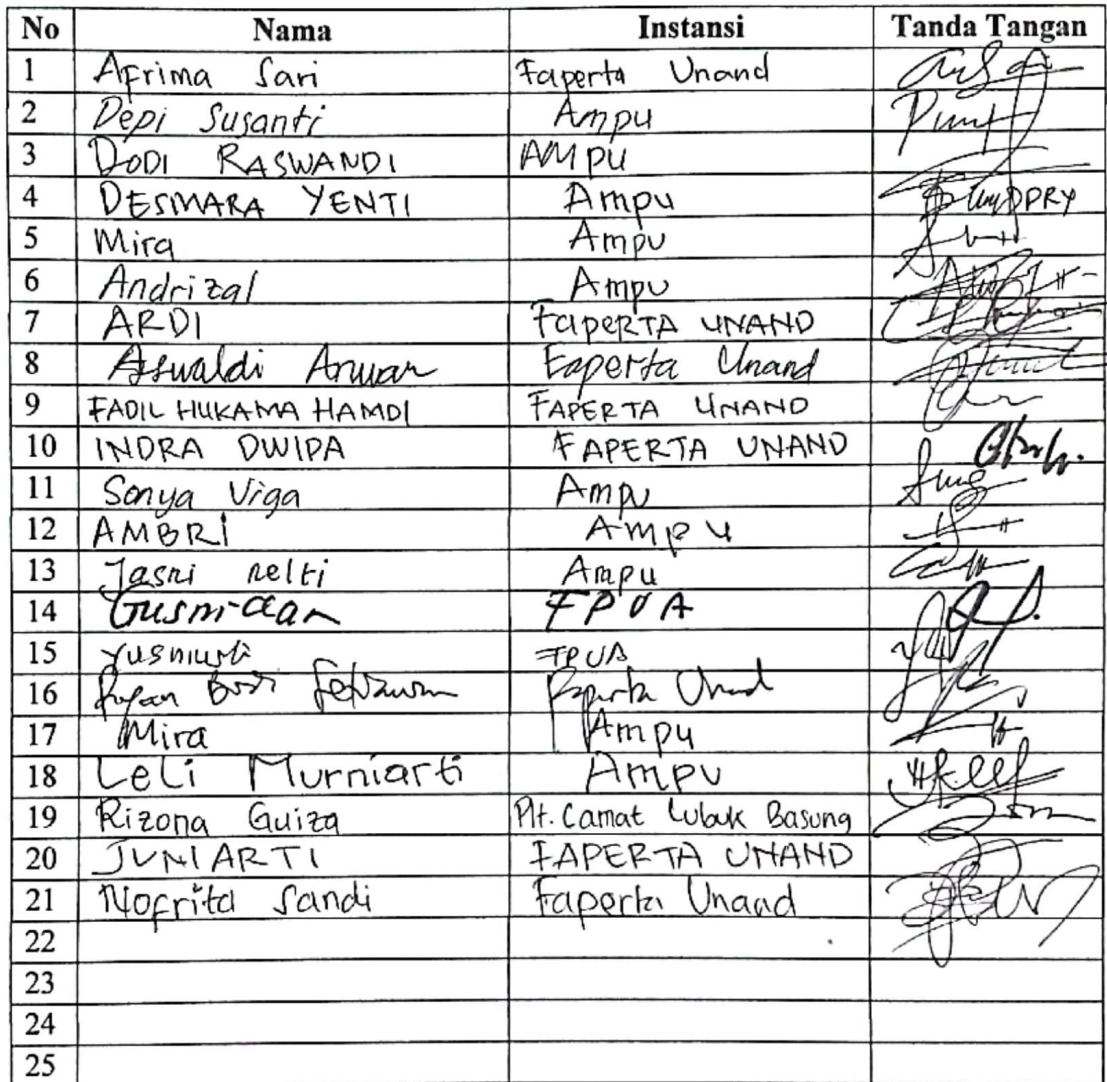 No Nama Instansi Tanda Tangan
1 Afrima Sari Faperta Unand
2 Depi Susanti Ampu
3 DODI RASWANDI AMPU
4 DESMARA YENTI Ampu
5 Mira Ampu
6 Andrizal Ampu
7 ARDI FapeRTA UNAND
8 Aswaldi Anwar Faperta Unand
9 FADIL HUKAMA HAMDI FAPERTA UNAND
10 INDRA DWIPA FAPERTA UNAND
11 Sonya Viga Ampu
12 AMBRI AMPU
13 Jasni nelti Ampu
14 Gusmidar FPUA
15 Yusniwati FPUA
16 Faperta Unand
17 Mira Ampu
18 Leli Murniarti Ampu
19 Rizona Guiza Plt. Camat Lubuk Basung
20 JUNIARTI FAPERTA UNAND
21 Nofrita Sandi Faperta Unand
22
23
24
25